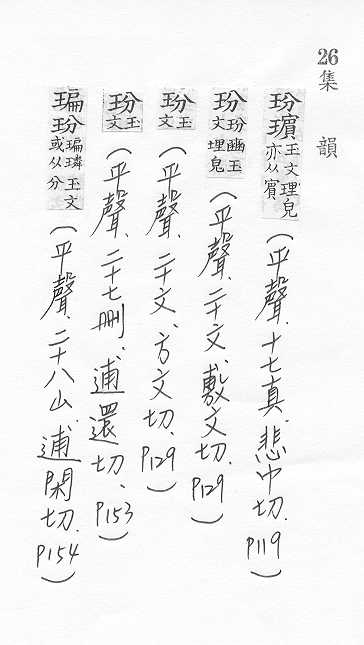 26 集 韻
玢璸玉文理皃亦从賓(平聲.十七真.悲巾切.P119)
玢玢豳玉文理皃(平聲.二十文.敷文切.P129)
玢玉文(平聲.二十文.方文切.P129)
玢玉文(平聲.二十七刪.逋還切.P153)
㻞玢㻞璘玉文或从分(平聲.二十八山.逋閑切.P154)